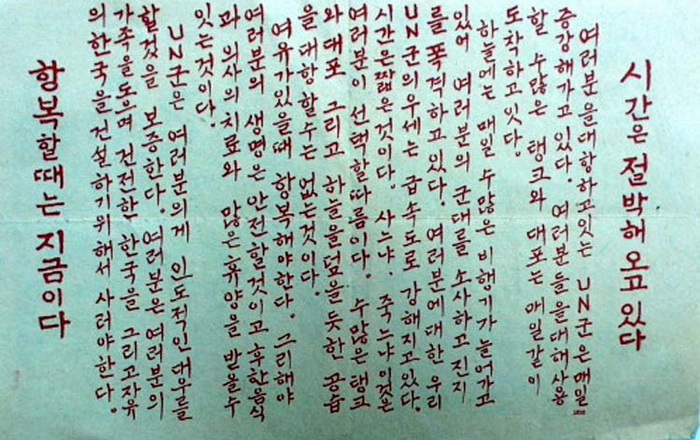 시간은 절박해 오고 있다
여러분을대항하고있는 UN군은매일
증강해가고 있다. 여러분들을대해사용
할 수많은 탱크와 대포는 매일같이
도착하고잇다.
하늘에는 매일 수많은 비행기가늘어가고
있어 여러분의 군대를 소사하고 진지
를 폭격하고 있다. 여러분에대한 우리
UN군의우세는 급속도로 강해지고있다.
시간은짧은것이다. 사느냐. 죽느냐이것은
여러분이 선택할따름이다. 수많은탱크
와대포 그리고 하늘을덮을듯한 공습
을대항할수는 없는것이다.
여유가있을때 항복해야한다. 그리해야
여러분의 생명은안전할것이고후한음식
과 의사의치료와 많은휴양을 받을수
잇는것이다.
UN군은 여러분의게 인도적인대우를
할것을 보증한다. 여러분은 여러분의
가족을도으며 건전한 한국을 그리고자유
의한국을건설하기위해서 사러야한다.
항복할때는 지금이다